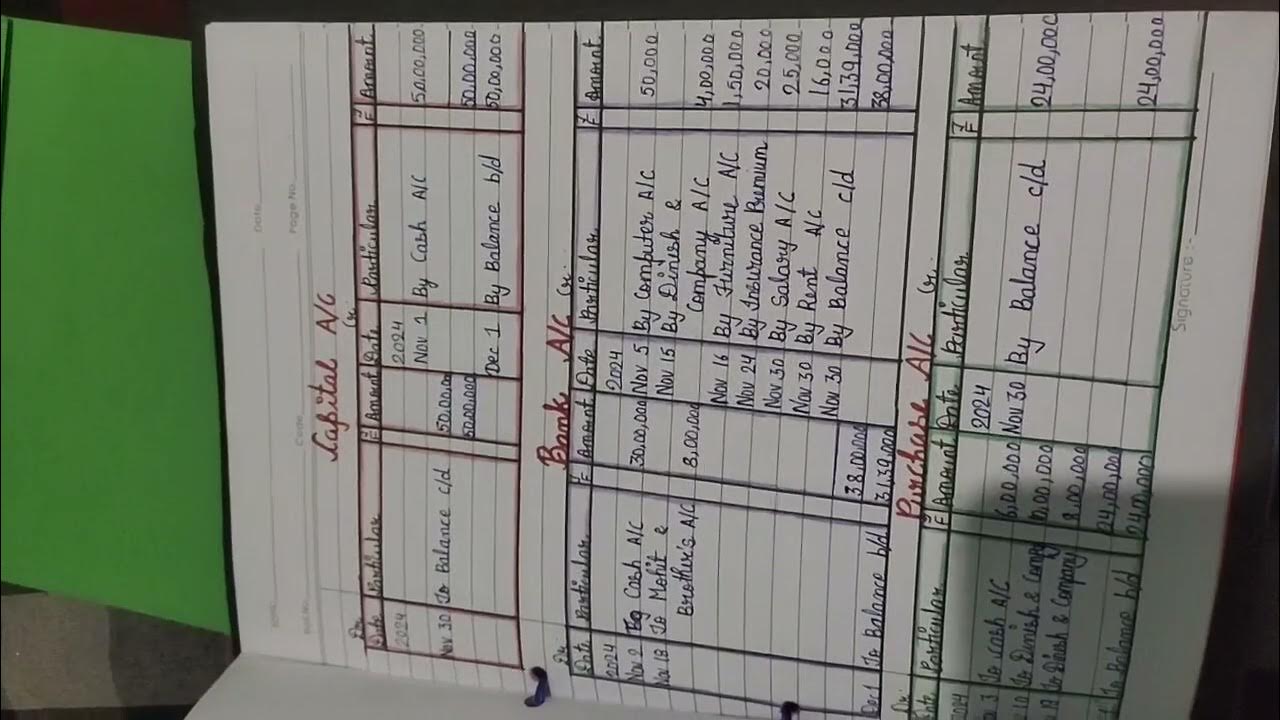 Date
Page No.
Code
Capital A/C
Dr. Cr.
Date Particular J F Amount Date Particular J F Amount
2024 2024
Nov 1 By Cash A/C 5,00,000
Nov 30 To Balance c/d 50,00,000 50,00,000
50,00,000 Dec 1 By Balance b/d 50,00,000
Bank A/C
Dr. Cr.
Date Particular J F Amount Date Particular J F Amount
2024 2024
Nov 2 To Cash A/C 30,00,000 Nov 5 By Computer A/C 50,000
Nov 18 To Mohit & Nov 15 By Dinesh &
Brother's A/C 8,00,000 Company A/C 4,00,000
Nov 16 By Furniture A/C 1,50,000
Nov 24 By Insurance Premium 20,000
Nov 30 By Salary A/C 25,000
Nov 30 By Rent A/C 16,000
Nov 30 By Balance c/d 31,39,000
38,00,000 38,00,000
Dec 1 To Balance b/d 31,39,000
Purchase A/C
Dr. Cr.
Date Particular J F Amount Date Particular J F Amount
2024 2024
3 To Cash A/C 6,00,000 Nov 30 By Balance c/d 24,00,000
10 To Dinesh & Comp
To & Company 8,00,000
24,00,000 24,00,000
To Balance b/d 24,00,000
Signature :-